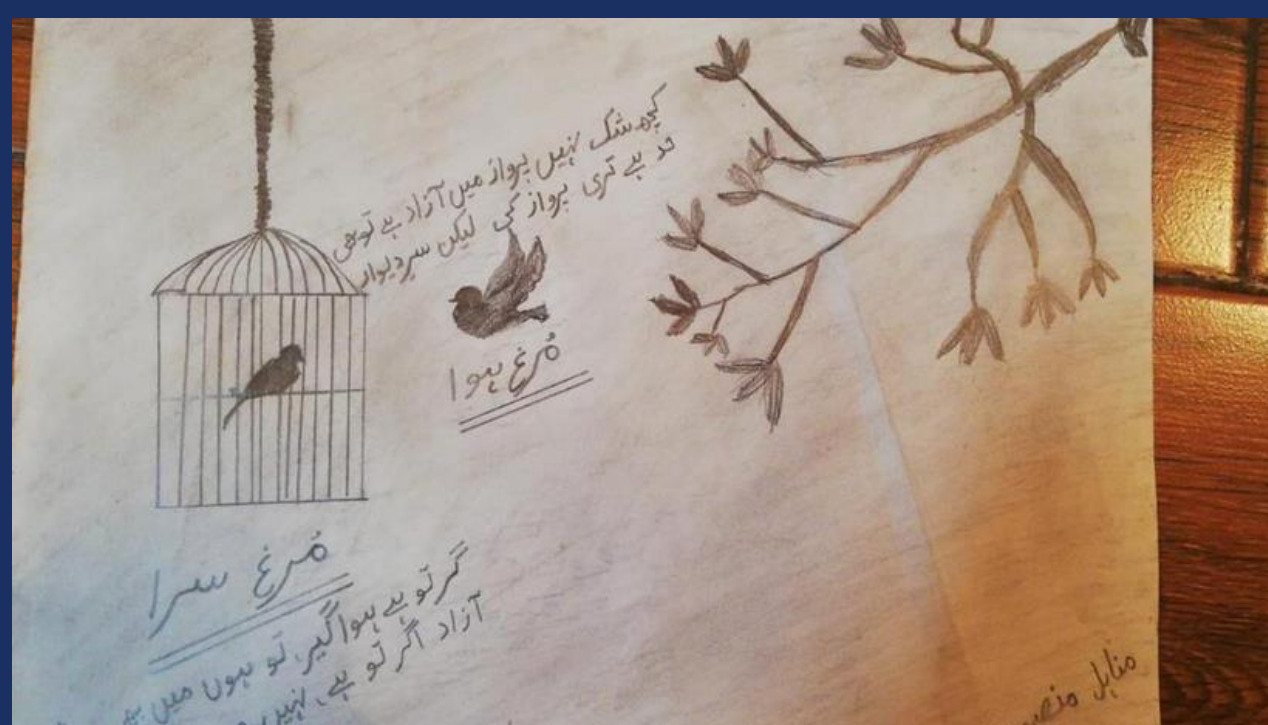 کچھ شک نہیں پرواز میں آزاد ہے تو بھی
حد ہے تری پرواز کی لیکن سرِ دیوار
مُرغِ ہوا
مُرغِ سرا
گر تو ہے ہوا گیر، تو ہوں میں بھی
آزاد اگر تو ہے، نہیں
مناہل